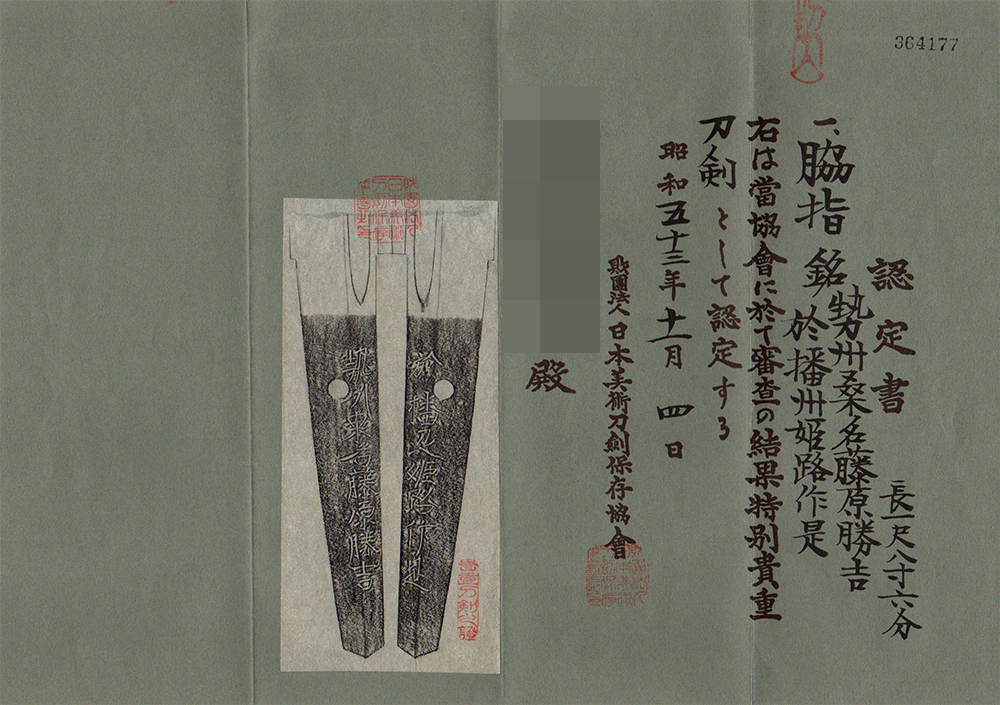 364177
認定書
一、脇指 銘 勢州桑名藤原勝吉
於播州姫路作是
長一尺八寸六分
右は當協會に於て審査の結果特別貴重
刀剣として認定する
昭和五十三年十一月四日
財團法人日本美術刀剣保存協會
殿
於播州姫路作是
勢州桑名藤原勝吉